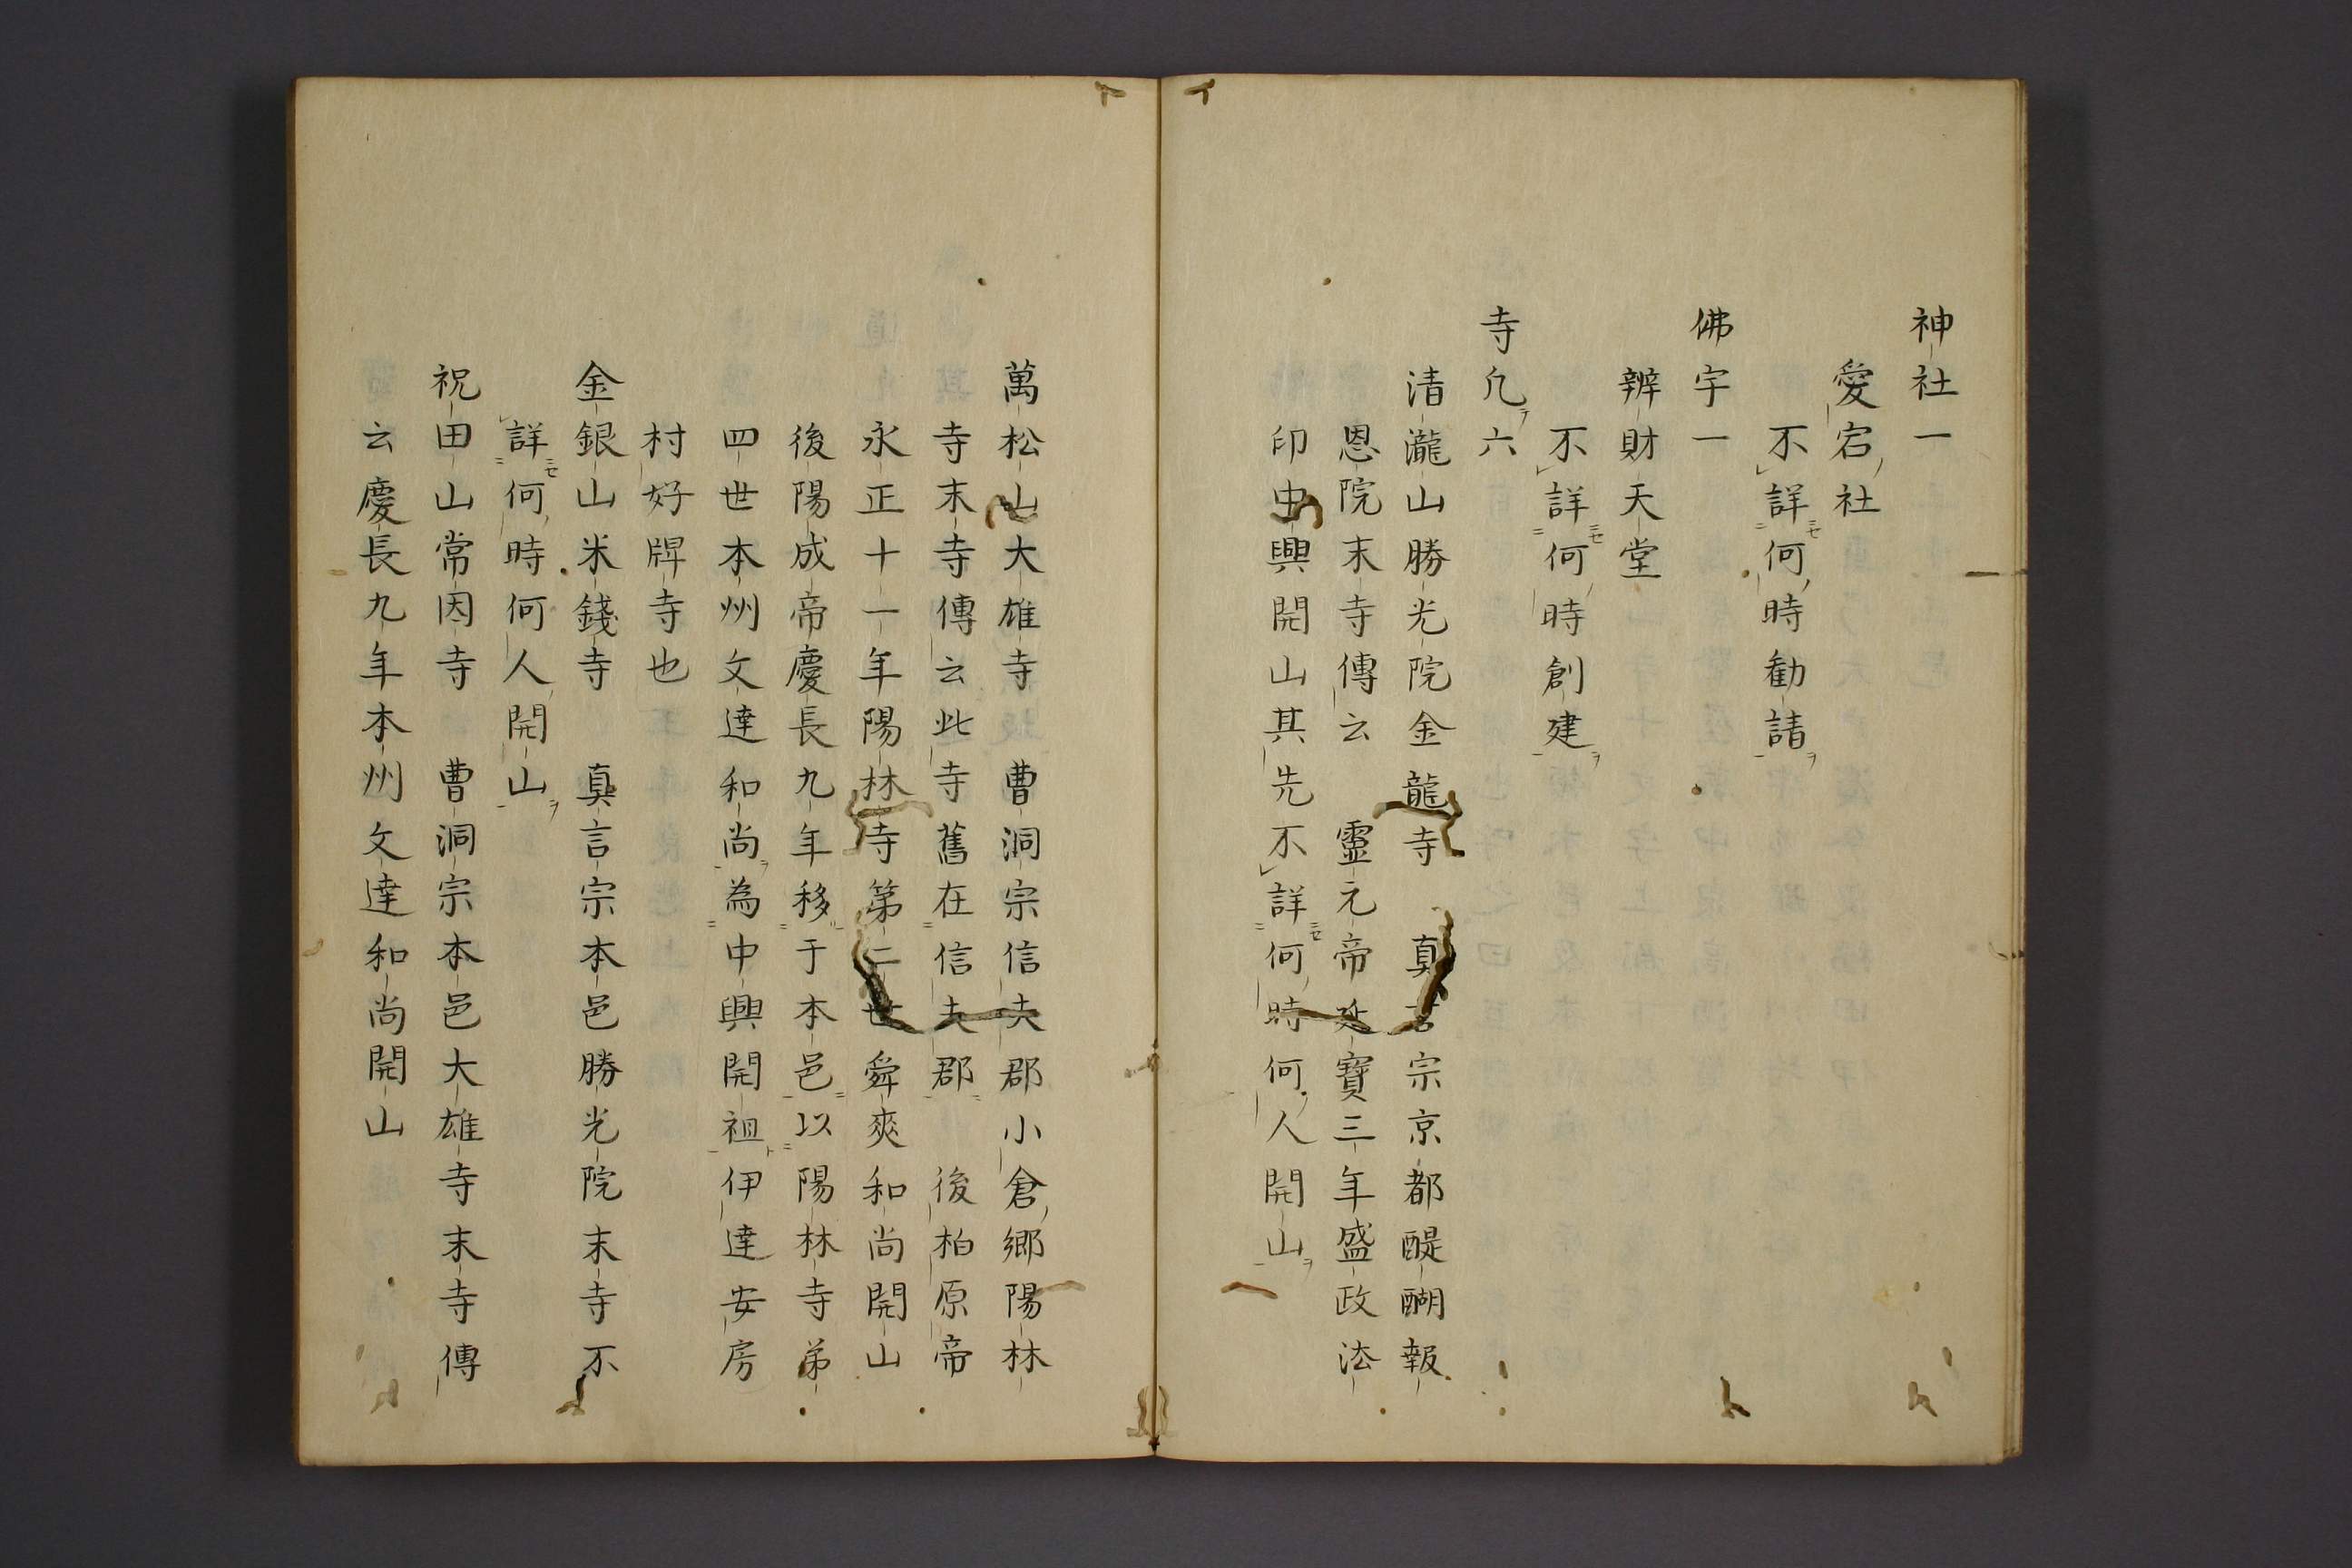 神社一
愛宕社
不詳何時勧請
佛宇一
辨財天堂
不詳何時創建
寺凢六
清瀧山勝光院金龍寺　真言宗京都醍醐報
恩院末寺傳云　靈元帝延寶三年盛政法
印中興開山其先不詳何時何人開山
萬松山大雄寺　曹洞宗信夫郡小倉郷陽林
寺末寺傳云此寺舊在信夫郡　後柏原帝
永正十一年陽林寺第二世舜奭和尚開山
後陽成帝慶長九年移于本邑以陽林寺弟
四世本州文達和尚為中興開祖伊達安房
村好牌寺也
金銀山米錢寺　真言宗本邑勝光院末寺不
詳何時何人開山
祝田山常因寺　曹洞宗本邑大雄寺末寺傳
云慶長九年本州文達和尚開山